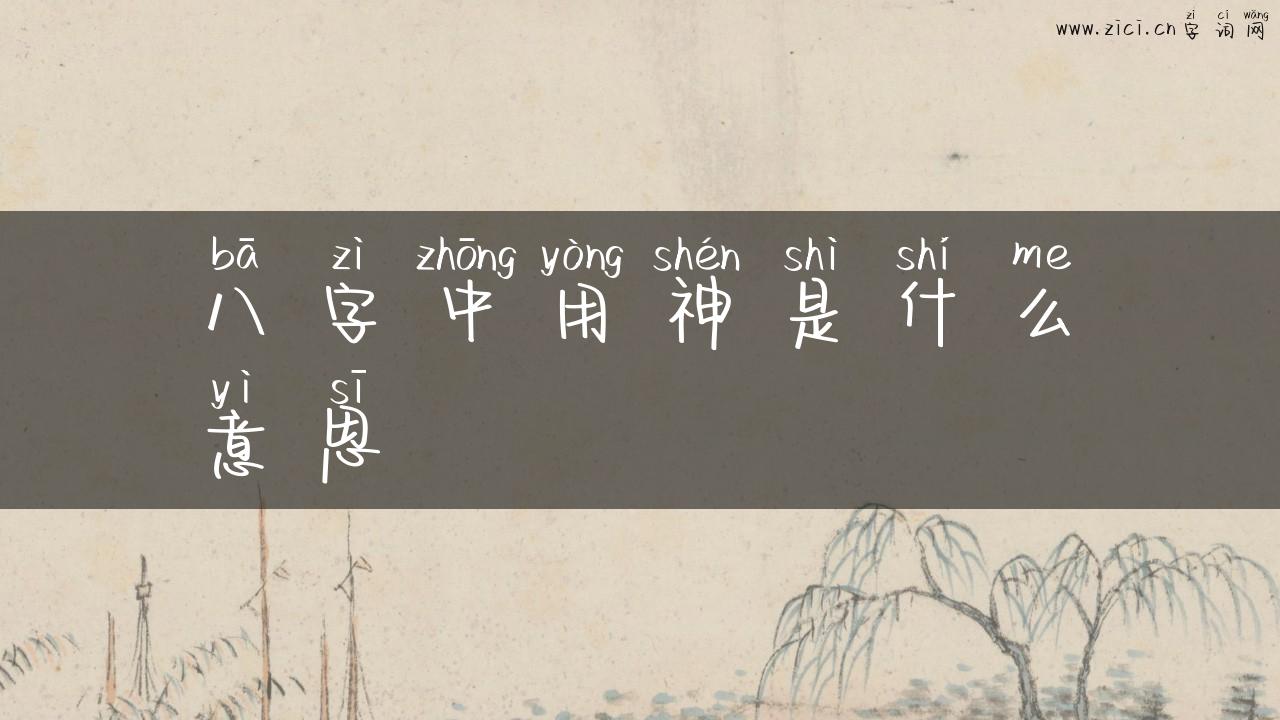 www.zici.cn 字词网
zì cí wǎng
bā zì zhōng yòng shén shì shí me
八字中用神是什么
yì sī
意思